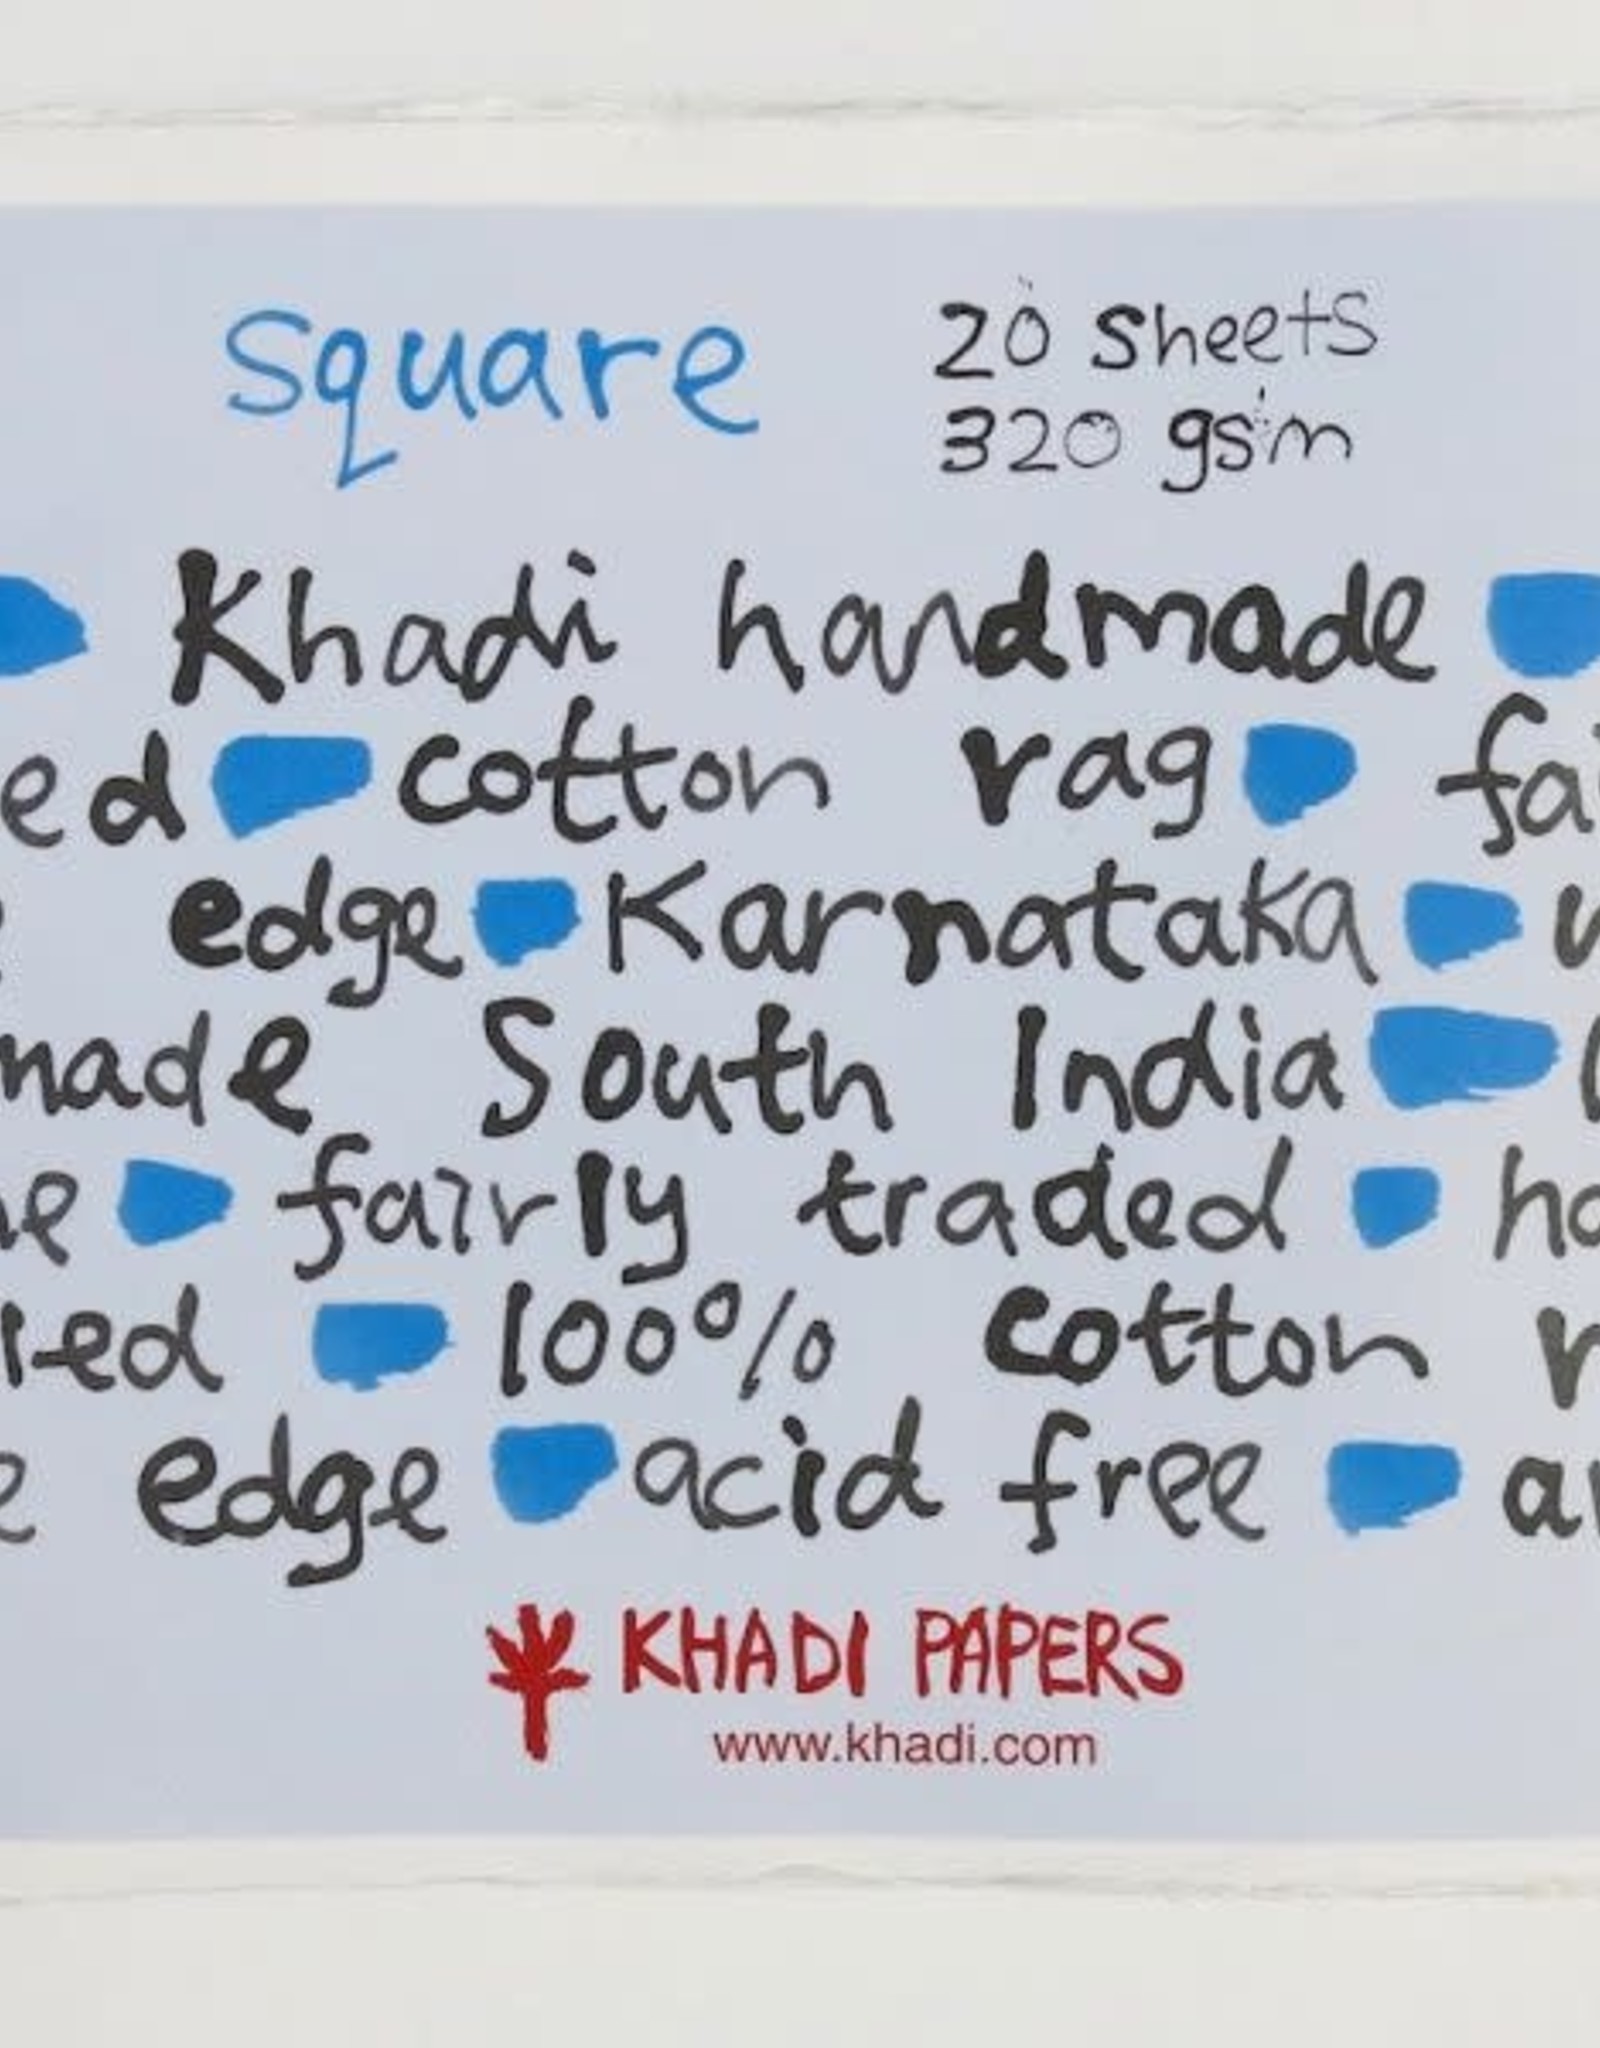 Square
20 Sheets
320 gsm
Khadi handmade
ed cotton rag fai
edge Karnataka
made South India
fairly traded ha
ied 100% cotton r
e edge acid free ar
KHADI PAPERS
www.khadi.com